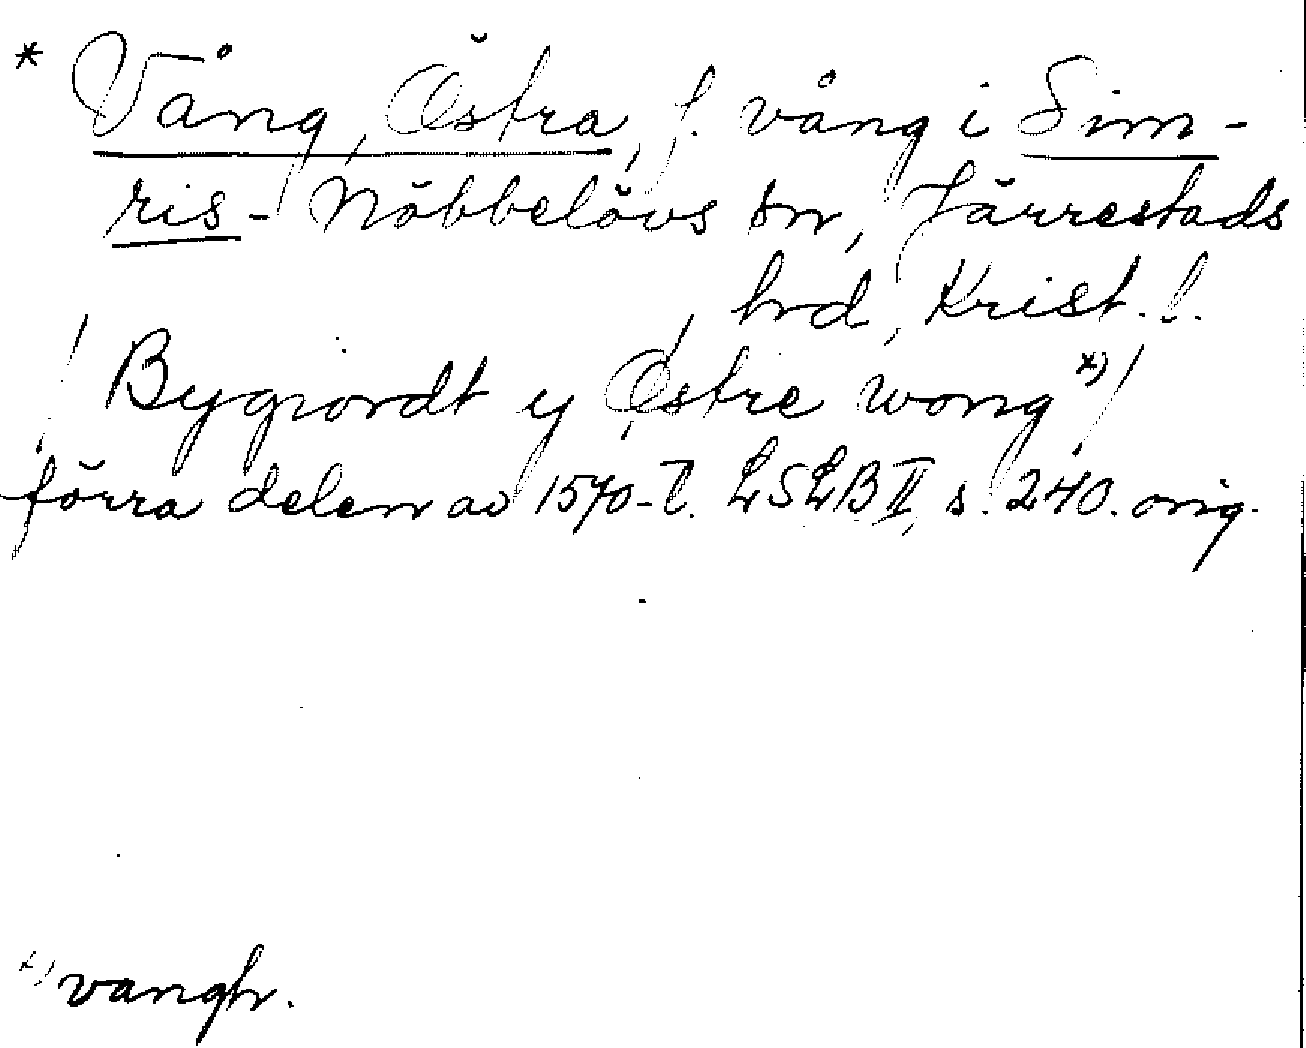 * Vång, Östra, f. vång i Sim-
ris-Nöbbelövs sn, Järrestads
hrd, Krist. l.
/ Bygiordt y Østre wong *) /
förra delen av 1570-t. LSLB II, s. 240. orig.
*) vangh.